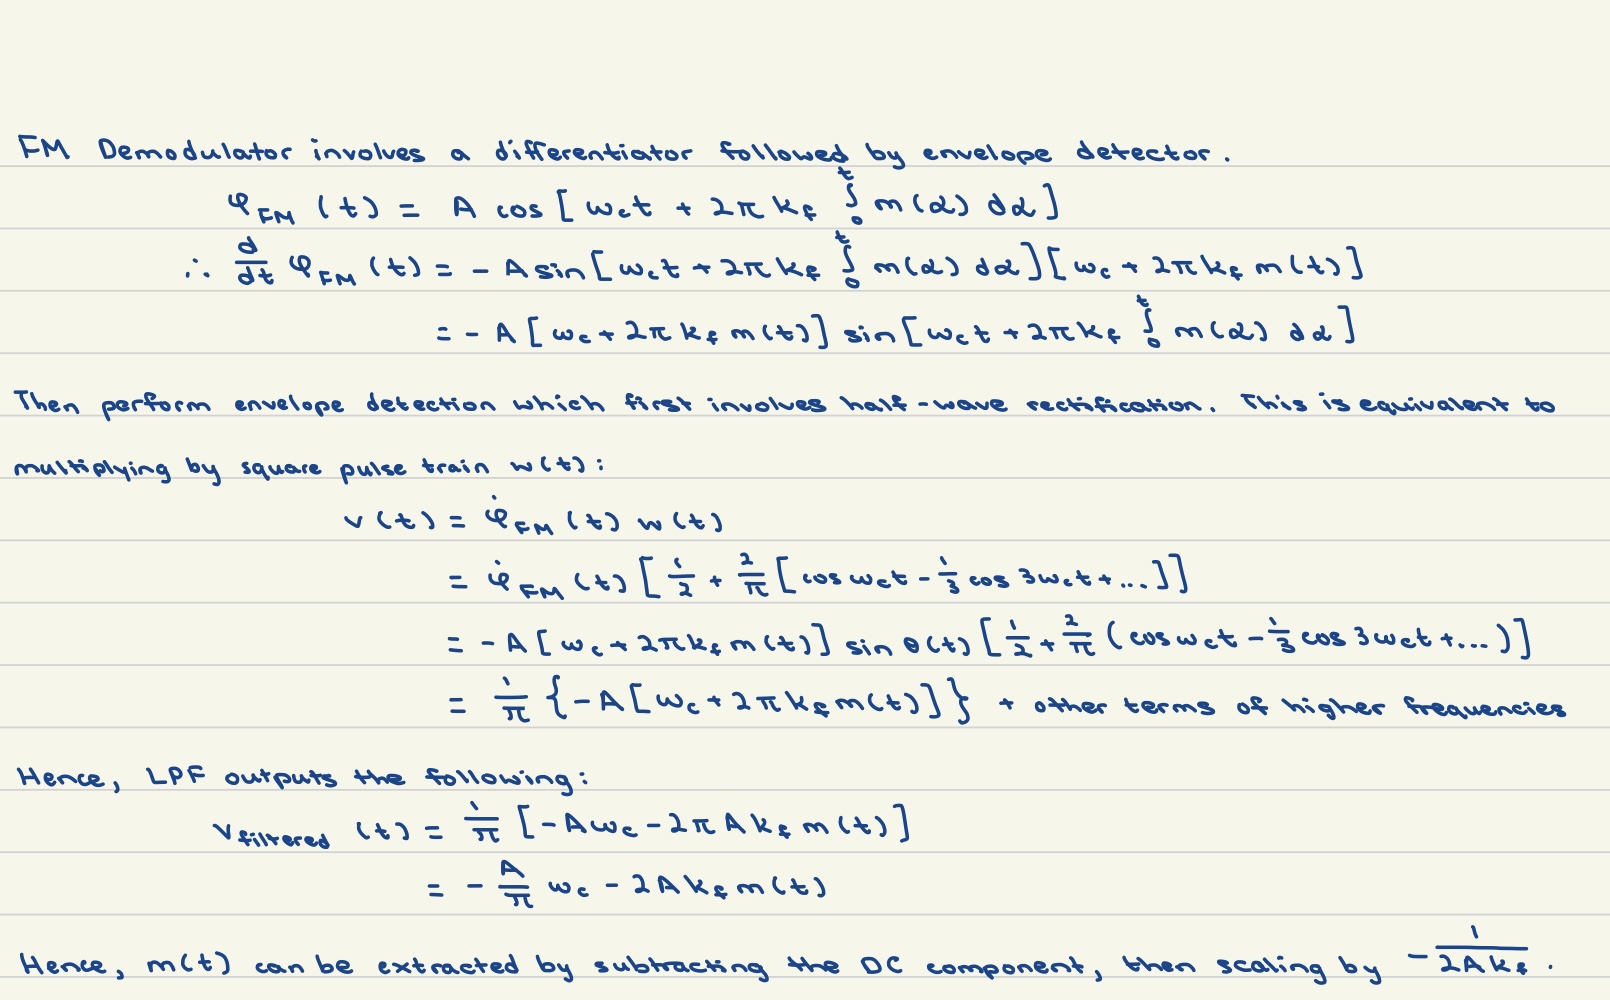 FM Demodulator involves a differentiator followed by envelope detector.
φ_FM (t) = A cos[ω_c t + 2π k_f ∫_0^t m(α) dα]
∴ d/dt φ_FM (t) = - A sin[ω_c t + 2π k_f ∫_0^t m(α) dα][ω_c + 2π k_f m(t)]
= - A [ω_c + 2π k_f m(t)] sin[ω_c t + 2π k_f ∫_0^t m(α) dα]
Then perform envelope detection which first involves half-wave rectification. This is equivalent to
multiplying by square pulse train w(t):
v(t) = φ̇_FM (t) w(t)
= φ̇_FM (t) [1/2 + 2/π [cos ω_c t - 1/3 cos 3ω_c t + ...]]
= - A [ω_c + 2π k_f m(t)] sin θ(t) [1/2 + 2/π (cos ω_c t - 1/3 cos 3ω_c t + ...)]
= 1/π {- A [ω_c + 2π k_f m(t)]} + other terms of higher frequencies
Hence, LPF outputs the following:
v_filtered (t) = 1/π [- A ω_c - 2π A k_f m(t)]
= - A/π ω_c - 2 A k_f m(t)
Hence, m(t) can be extracted by subtracting the DC component, then scaling by - 1/(2 A k_f).